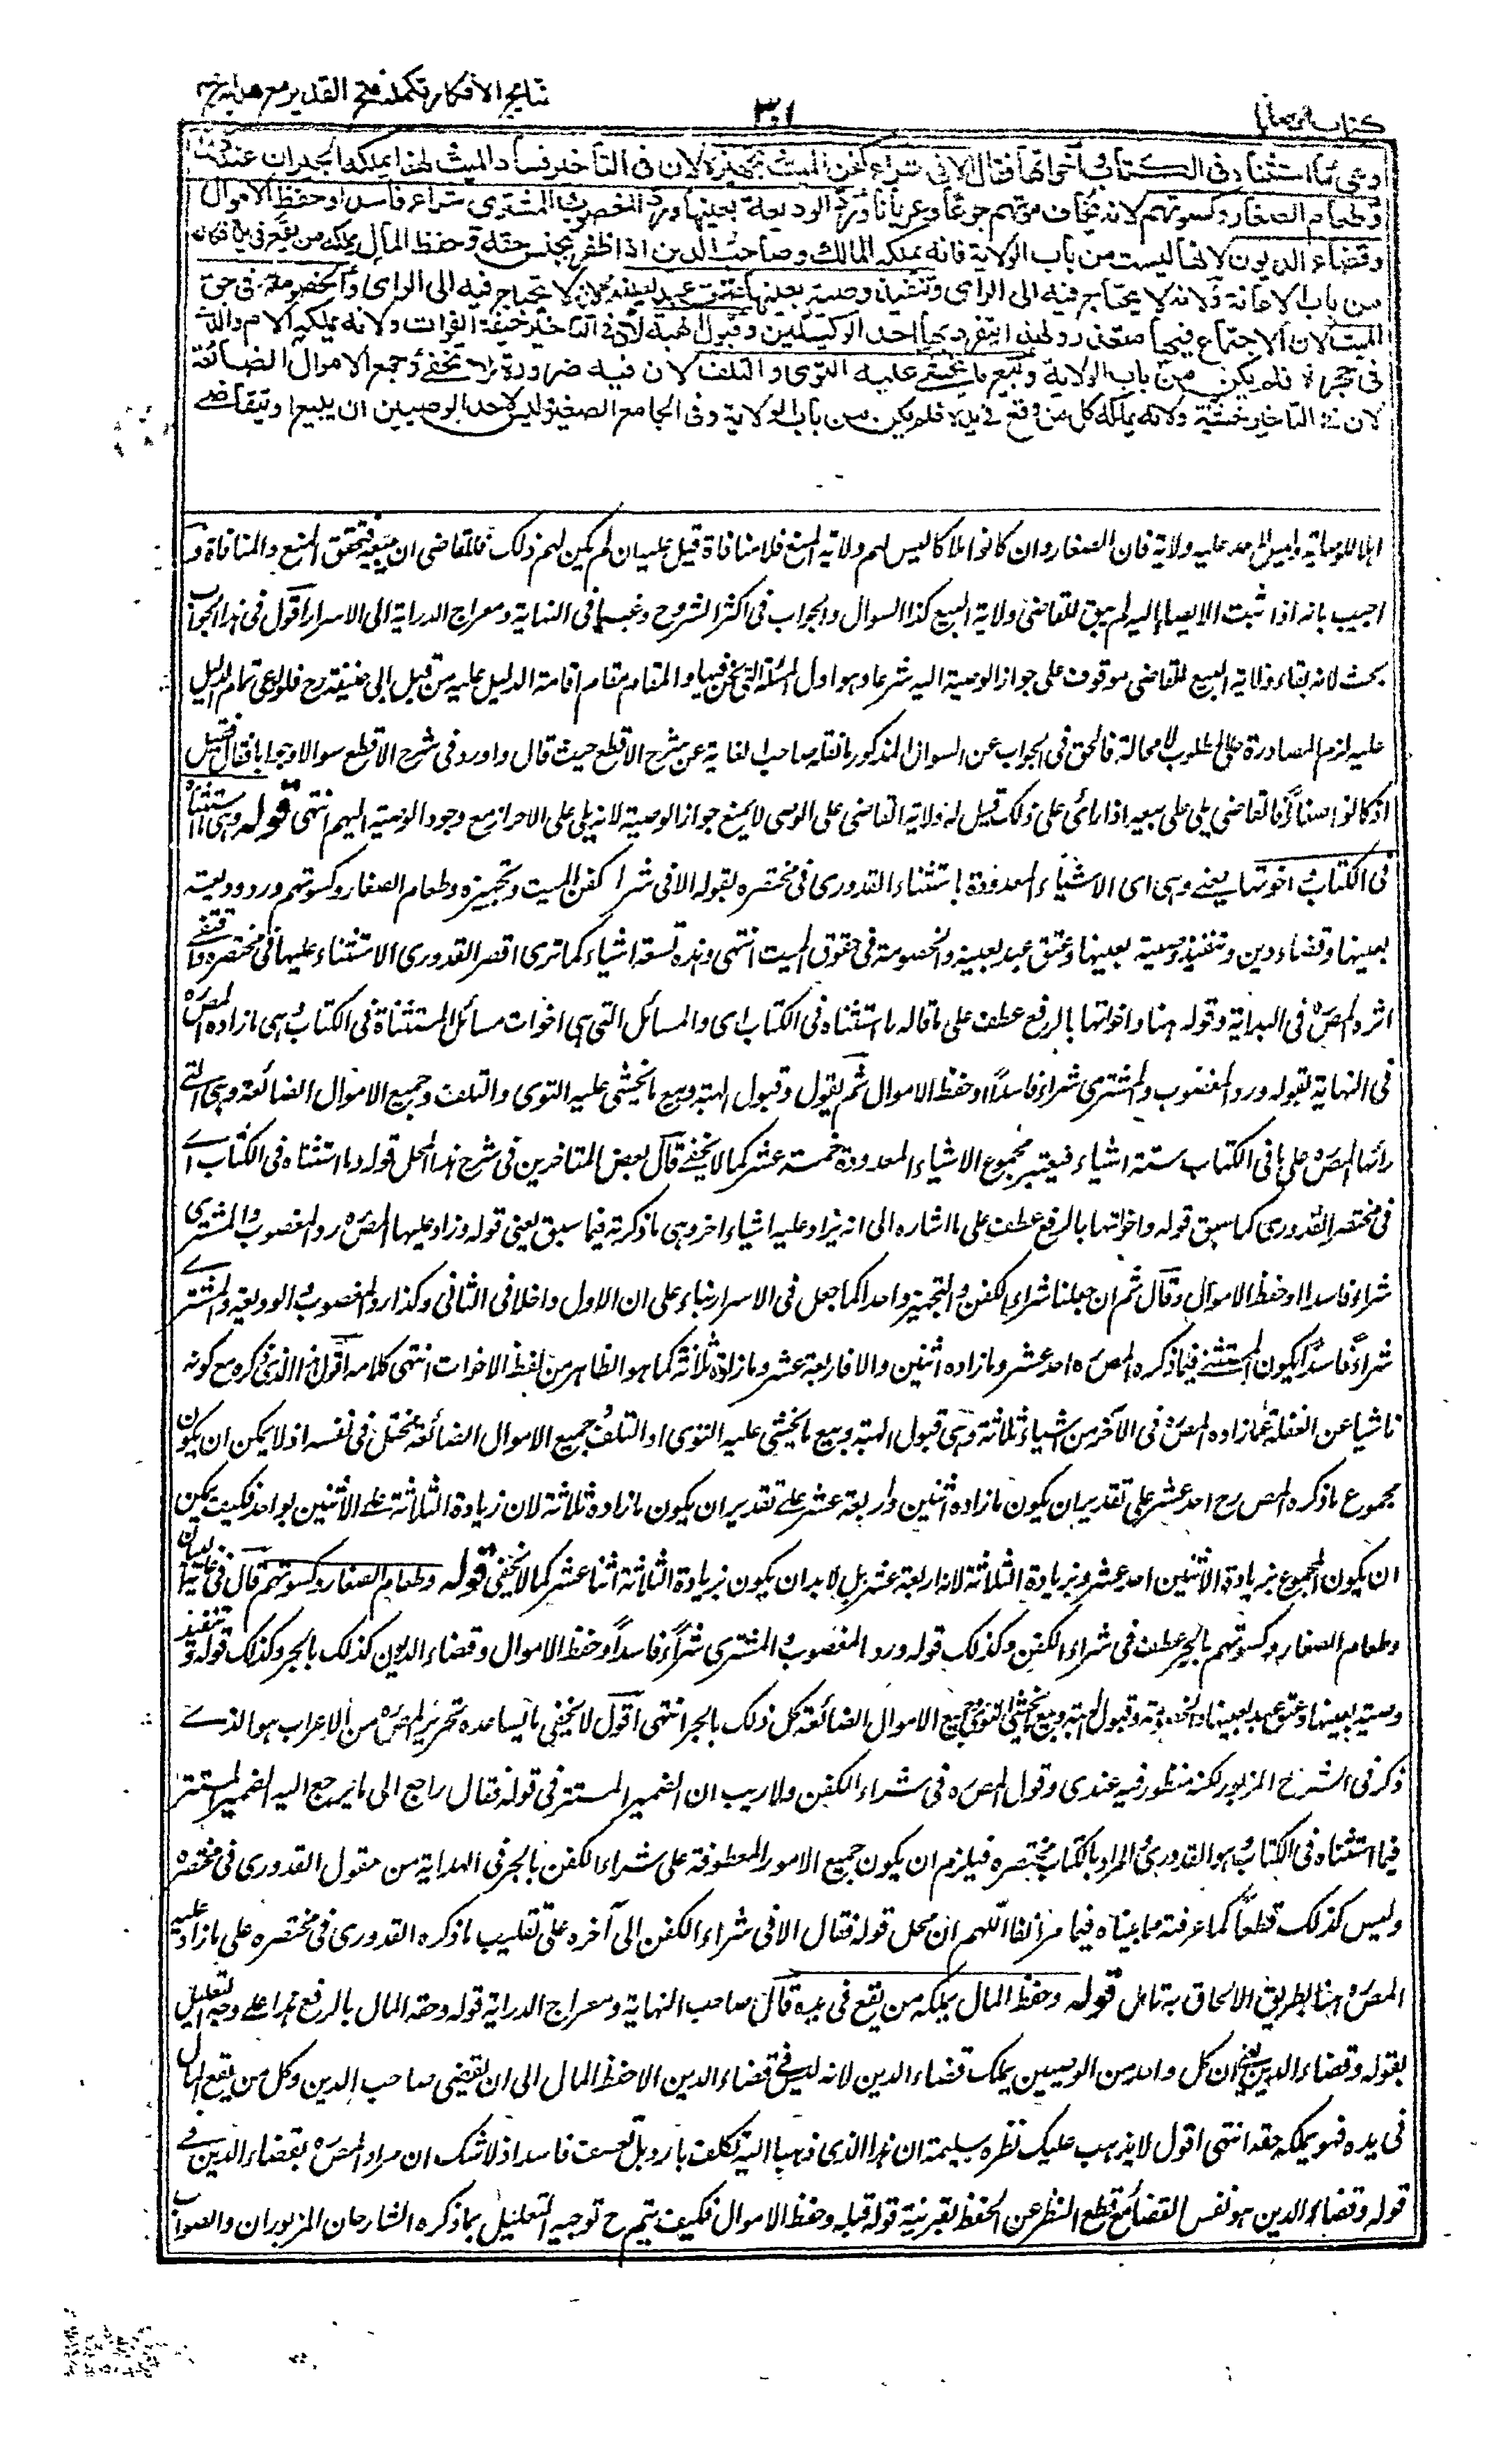 كتاب الوصايا
٣٠١
نتايج الأفكار تكملة فتح القدير مع هداية
وهي ما استثناه في الكتاب وأخواتها فقال الا في شراء كفن الميت وتجهيزه لان في التأخير فساد الميت ولهذا يملكه الجيران عند ذلك
وطعام الصغار وكسوتهم لانه يخاف موتهم جوعا وعريانا ورد الوديعة بعينها ورد المغصوب والمشترى شراء فاسدا وحفظ الاموال
وقضاء الديون لانها ليست من باب الولاية فانه يملكه المالك وصاحب الدين اذا ظفر بجنس حقه وحفظ المال يملكه من يقع في يده فكان
من باب الاعانة ولانه لا يحتاج فيه الى الراى وتنفيذ وصية بعينها وعتق عبد بعينه لانه لا يحتاج فيه الى الراى والخصومة في حق
الميت لان الاجتماع فيها متعذر ولهذا ينفرد بها احد الوكيلين وقبول الهبة لان في التأخير خيفة الفوات ولانه يملكه الام والذي
في حجره فلم يكن من باب الولاية وبيع ما يخشى عليه التوى والتلف لان فيه ضرورة لا تخفى وجمع الاموال الضائعة
لان في التأخير خشية ولانه يملكه كل من وقع في يده فلم يكن من باب الولاية وفي الجامع الصغير وليس لاحد الوصيين ان يبيع او يتقاضى
اهلا للوصاية وليس لاحد عليه ولاية فان الصغار وان كانوا ملاكا ليس لهم ولاية المنع فلا منافاة قيل عليه ان لم يكن لهم ذلك فللقاضى ان يبيعه فيتحقق المنع والمنافاة و
اجيب بانه اذا ثبت الايصاء اليه لم يبق للقاضى ولاية البيع كذا السوال والجواب في اكثر الشروح وغيها في النهاية ومعراج الدراية الى الاسرار اقول في هذا الجواب
بحث لانه بقاء ولاية البيع للقاضى موقوف على جواز الوصية اليه شرعا وهو اول المسئلة التي نحن فيها والمقام مقام اقامة الدليل عليه من قبل ابى حنيفة رح فلو بنى تمام الدليل
عليه لزم المصادرة على المطلوب لا محالة فالحق في الجواب عن السوال المذكور ما نقله صاحب الغاية عن شرح الاقطع حيث قال واورد في شرح الاقطع سوالا وجوابا فقال فان قيل
اذ كانوا صغارا فالقاضى يلى على بيعه اذا راى على ذلك قيل له ولاية القاضى على الوصى لا يمنع جواز الوصية لانه يلى على الاحرار مع وجود الوصية اليهم انتهى قوله وهى ما استثناه
في الكتاب واخوتها يعنى وهى اى الاشياء المعدودة باستثناء القدورى في مختصره بقوله الا في شراء كفن الميت وتجهيزه وطعام الصغار وكسوتهم ورد وديعة
بعينها وقضاء دين وتنفيذ وصية بعينها وعتق عبد بعينه والخصومة في حقوق الميت انتهى وهذه تسعة اشياء كما ترى اقصر القدورى الاستثناء عليها في مختصره واقتفى
اثره المصرح في البداية وقوله هنا واخواتها بالرفع عطف على ما قاله ما استثناه في الكتاب اى والمسائل التي هي اخوات مسائل المستثناة في الكتاب وهى ما زاده المصرح
في النهاية بقوله ورد المغصوب والمشترى شراء فاسدا او حفظ الاموال ثم يقول وقبول الهبة وبيع ما يخشى عليه التوى والتلف وجميع الاموال الضائعة وهى التي
زادها المصرح على ما في الكتاب ستة اشياء فيعتبر مجموع الاشياء المعدودة خمسة عشر كما لا يخفى قال بعض المتاخرين في شرح هذا المحل قوله ما استثناه في الكتاب اى
في مختصر القدورى كما سبق قوله واخواتها بالرفع عطف على ما اشاره الى انه يزاد عليه اشياء اخر وهى ما ذكرته فيما سبق يعنى قوله وزاد عليها المصرح رد المغصوب والمشترى
شراء فاسدا او حفظ الاموال وقال ثم ان جعلنا شراء الكفن والتجهيز واحدا كما جعل في الاسرار بناء على ان الاول داخلا في الثانى وكذا رد المغصوب والوديعة والمشترى
شراء فاسدا يكون المستثنى فيما ذكره المصره احد عشر وما زاده اثنين والا فاربعة عشر وما زاده ثلاثة كما هو الظاهر من لفظ الاخوات انتهى كلامه اقول هذا الذى ذكره مع كونه
ناشيا عن الغفلة عما زاده المصرح في الآخر من اشياء ثلاثة وهى قبول الهبة وبيع ما يخشى عليه التوى او التلف وجميع الاموال الضائعة مختل في نفسه اذ لا يمكن ان يكون
مجموع ما ذكره المص رح احد عشر على تقدير ان يكون ما زاده اثنين واربعة عشر على تقدير ان يكون ما زاده ثلاثة لان زيادة الثلاثة على الاثنين بواحد فكيف يمكن
ان يكون المجموع بزيادة الاثنين احد عشر وبزيادة الثلاثة لانه اربعة عشر بل لا بد ان يكون بزيادة الثلاثة اثنا عشر كما لا يخفى قوله وطعام الصغار وكسوتهم قال في غاية البيان
وطعام الصغار وكسوتهم بالجر عطف في شراء الكفن وكذلك قوله ورد المغصوب والمشترى شراء فاسدا وحفظ الاموال وقضاء الديون كذلك بالجر وكذلك قوله وتنفيذ
وصية بعينها وعتق عبد بعينه والخصومة وقبول الهبة وبيع ما يخشى التوى وجميع الاموال الضائعة كل ذلك بالجر انتهى اقول لا يخفى ما يساعده تحرير المصره من الاعراب هو الذى
ذكر في الشرح المزبور لكنه منظور فيه عندى وقول المصره في شراء الكفن ولا ريب ان الضمير المستتر في قوله فقال راجع الى ما يرجع اليه الضمير المستتر
فيما استثناه في الكتاب وهو القدورى والمراد بالكتاب مختصره فيلزم ان يكون جميع الامور المعطوفة على شراء الكفن بالجر في الهداية من مقول القدورى في مختصره
وليس كذلك قطعا كما عرفته مما بيناه فيما مر آنفا اللهم ان محل قوله فقال الا في شراء الكفن الى آخره على تغليب ما ذكره القدورى في مختصره على ما زاد عليه
المصره هنا بطريق الالحاق به تامل قوله وحفظ المال يملكه من يقع في يده قال صاحب النهاية ومعراج الدراية قوله وحفظ المال بالرفع هذا على وجه التعليل
بقوله وقضاء الدين يعنى ان كل واحد من الوصيين يملك قضاء الدين لانه ليس في قضاء الدين الا حفظ المال الى ان يقضى صاحب الدين وكل من يقع المال
في يده فهو يملكه حقه انتهى اقول لا يذهب عليك نظره سليمة ان هذا الذى ذهبا اليه تكلف بارد بل تعسف فاسد اذ لا شك ان مراد المصره بقضاء الدين في
قوله وقضاء الدين هو نفس القضاء مع قطع النظر عن الحفظ بقرينة قوله قبله وحفظ الاموال فكيف يتم ح توجيه التعليل بما ذكره الشارحان المزبوران والصواب